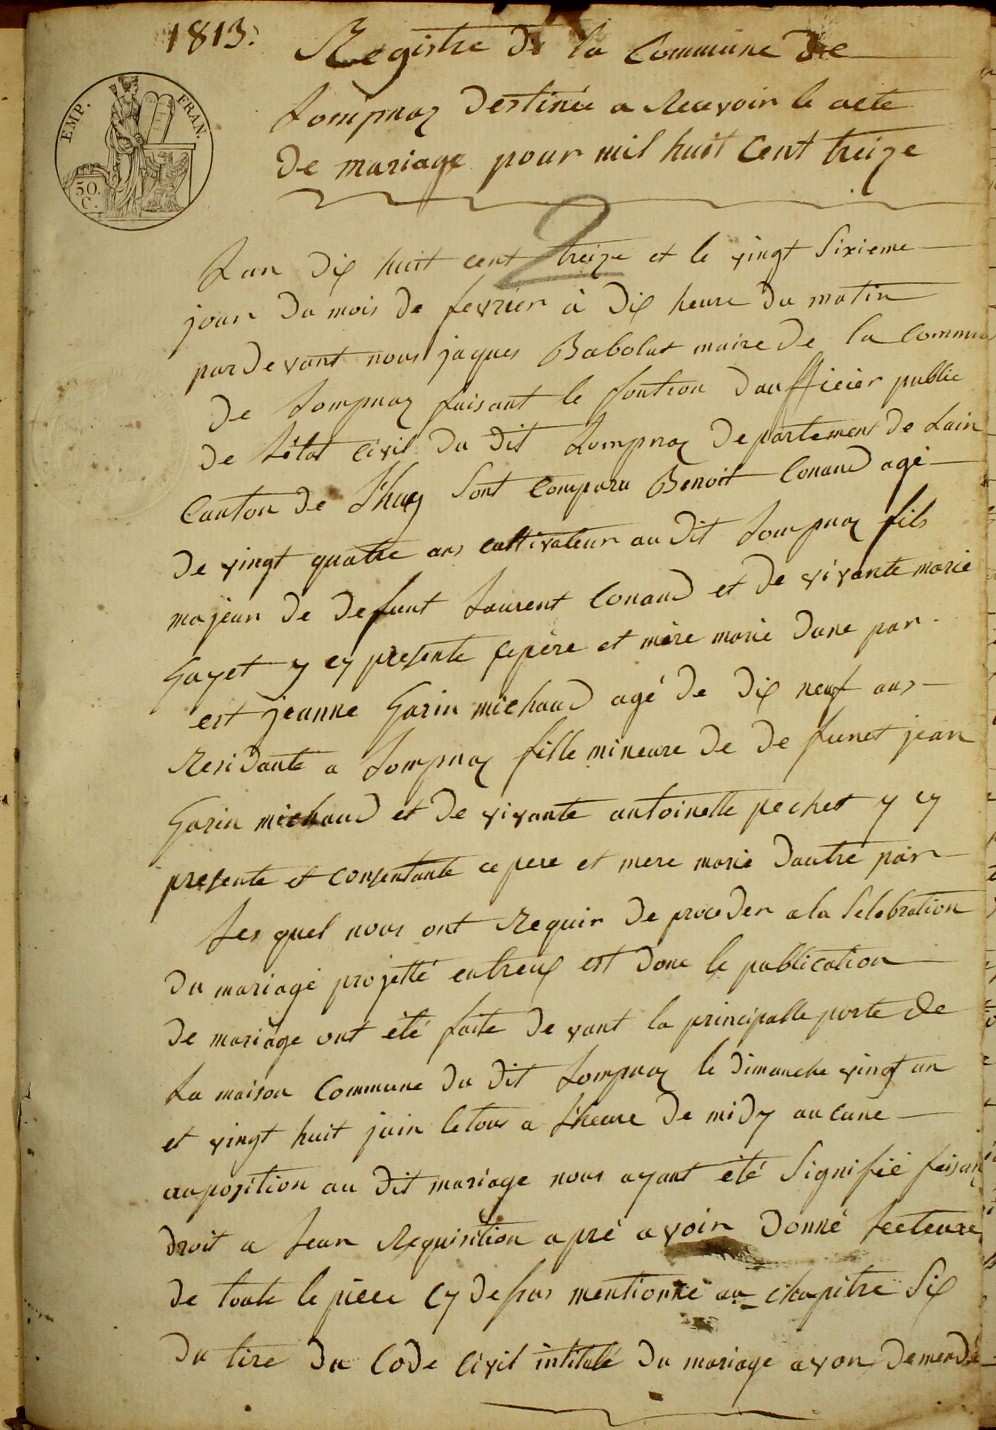 1813.
Registre de la Commune de
Lompnaz destinée a Recevoir le acte
de mariage pour mil huit Cent treize
EMP. FRAN.
50. C.
2
Lan dix huit cent treize et le vingt Sixieme
jour du mois de fevrier à dix heure du matin
pardevant nous jaques Babolat maire de la Commu
de Lompnaz faisant le fontion daufficier public
de Létat civil du dit Lompnaz departement de Lain
Canton de Lhuis Sont Comparu Benoit Conand agé
de vingt quatre ans cultivateur au dit Lompnaz fils
majeur de defunt Laurent Conand et de vivante marie
Gayet y cy presente ce père et mère marié dune par
est jeanne Garin michaud agé de dix neuf ans
Residante a Lompnaz fille mineure de de funet jean
Garin michaud et de vivante antoinette pechet y cy
presente et consentante ce pere et mere marié dautre par
Les quel nous ont Requir de proceder a la Selebration
du mariage projetté entreux est donc le publication
de mariage ont été faite de vant la principalle porte de
La maison Commune du dit Lompnaz le dimanche vingt un
et vingt huit juin le tous a Lheure de midy aucune
auposition au dit mariage nous ayant été Signifié faisan
droit a Leur Requisition apré avoir donné Lecteure
de toute le piece cy desus mentionné au chapitre Six
du tire du Code Civil intitulé du mariage avon demendé